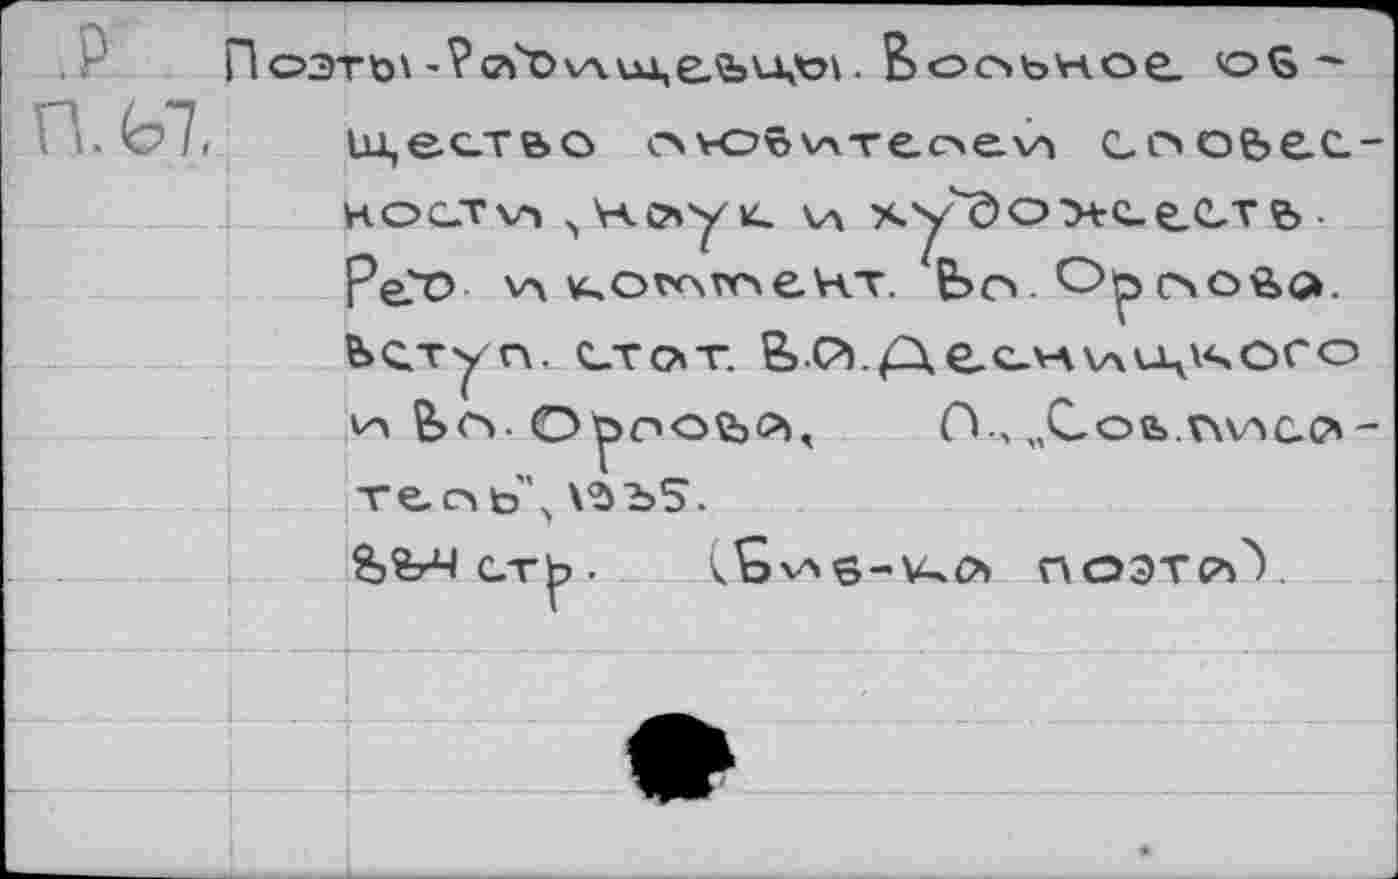 Р Поэты-Радищевцы. Вольное об-
П.67, щество любителей словес-
ности, наук и художеств.
Ред. и коммент. Вл. Орлова.
Вступ. стат. В.А.Десницкого
и Вл. Орлова, Л., „Сов.писа-
тель", 1935.
884 стр. (Биб-ка поэта).